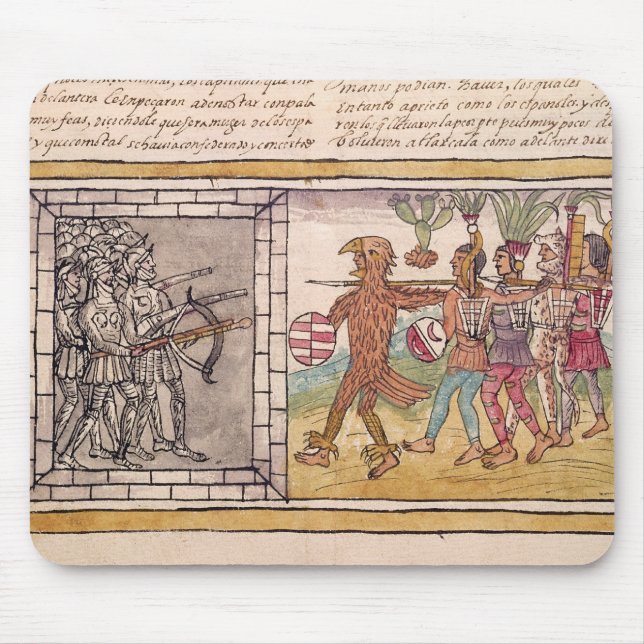 delantera le enpeçaron adenostar conpala
muy feas, diçiendole que fera muger delos espa
y que como tal se havia confederado y concertro
manos podian. Haver, los quales
En tanto aprieto como los españoles, y
ren los q̃ lleuaron la peor pte pues muy pocos de
boluieron a tlaxcala como adelante dire